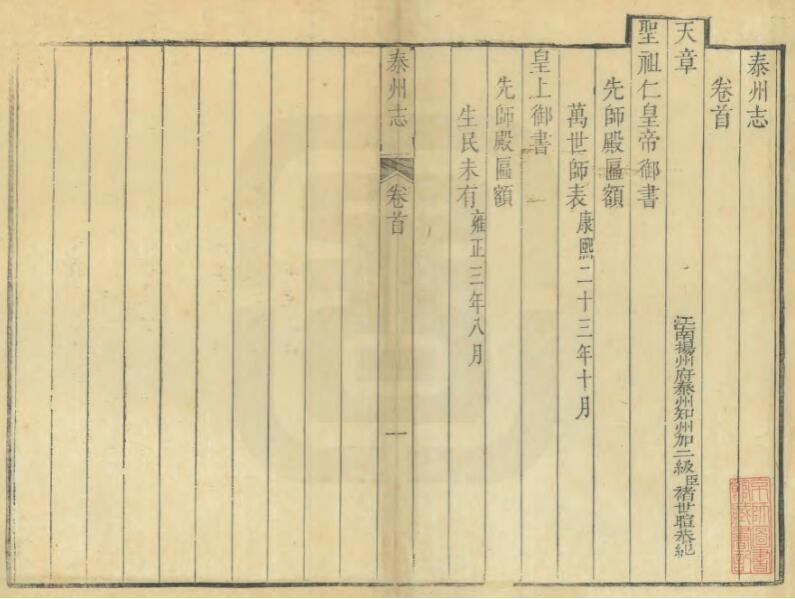 泰州志
卷首
天章
江南揚州府泰州知州加二級臣褚世暄恭紀
聖祖仁皇帝御書
先師殿匾額
萬世師表康熙二十三年十月
皇上御書
先師殿匾額
生民未有雍正三年八月
泰州志
卷首
一
京師圖書館藏書章